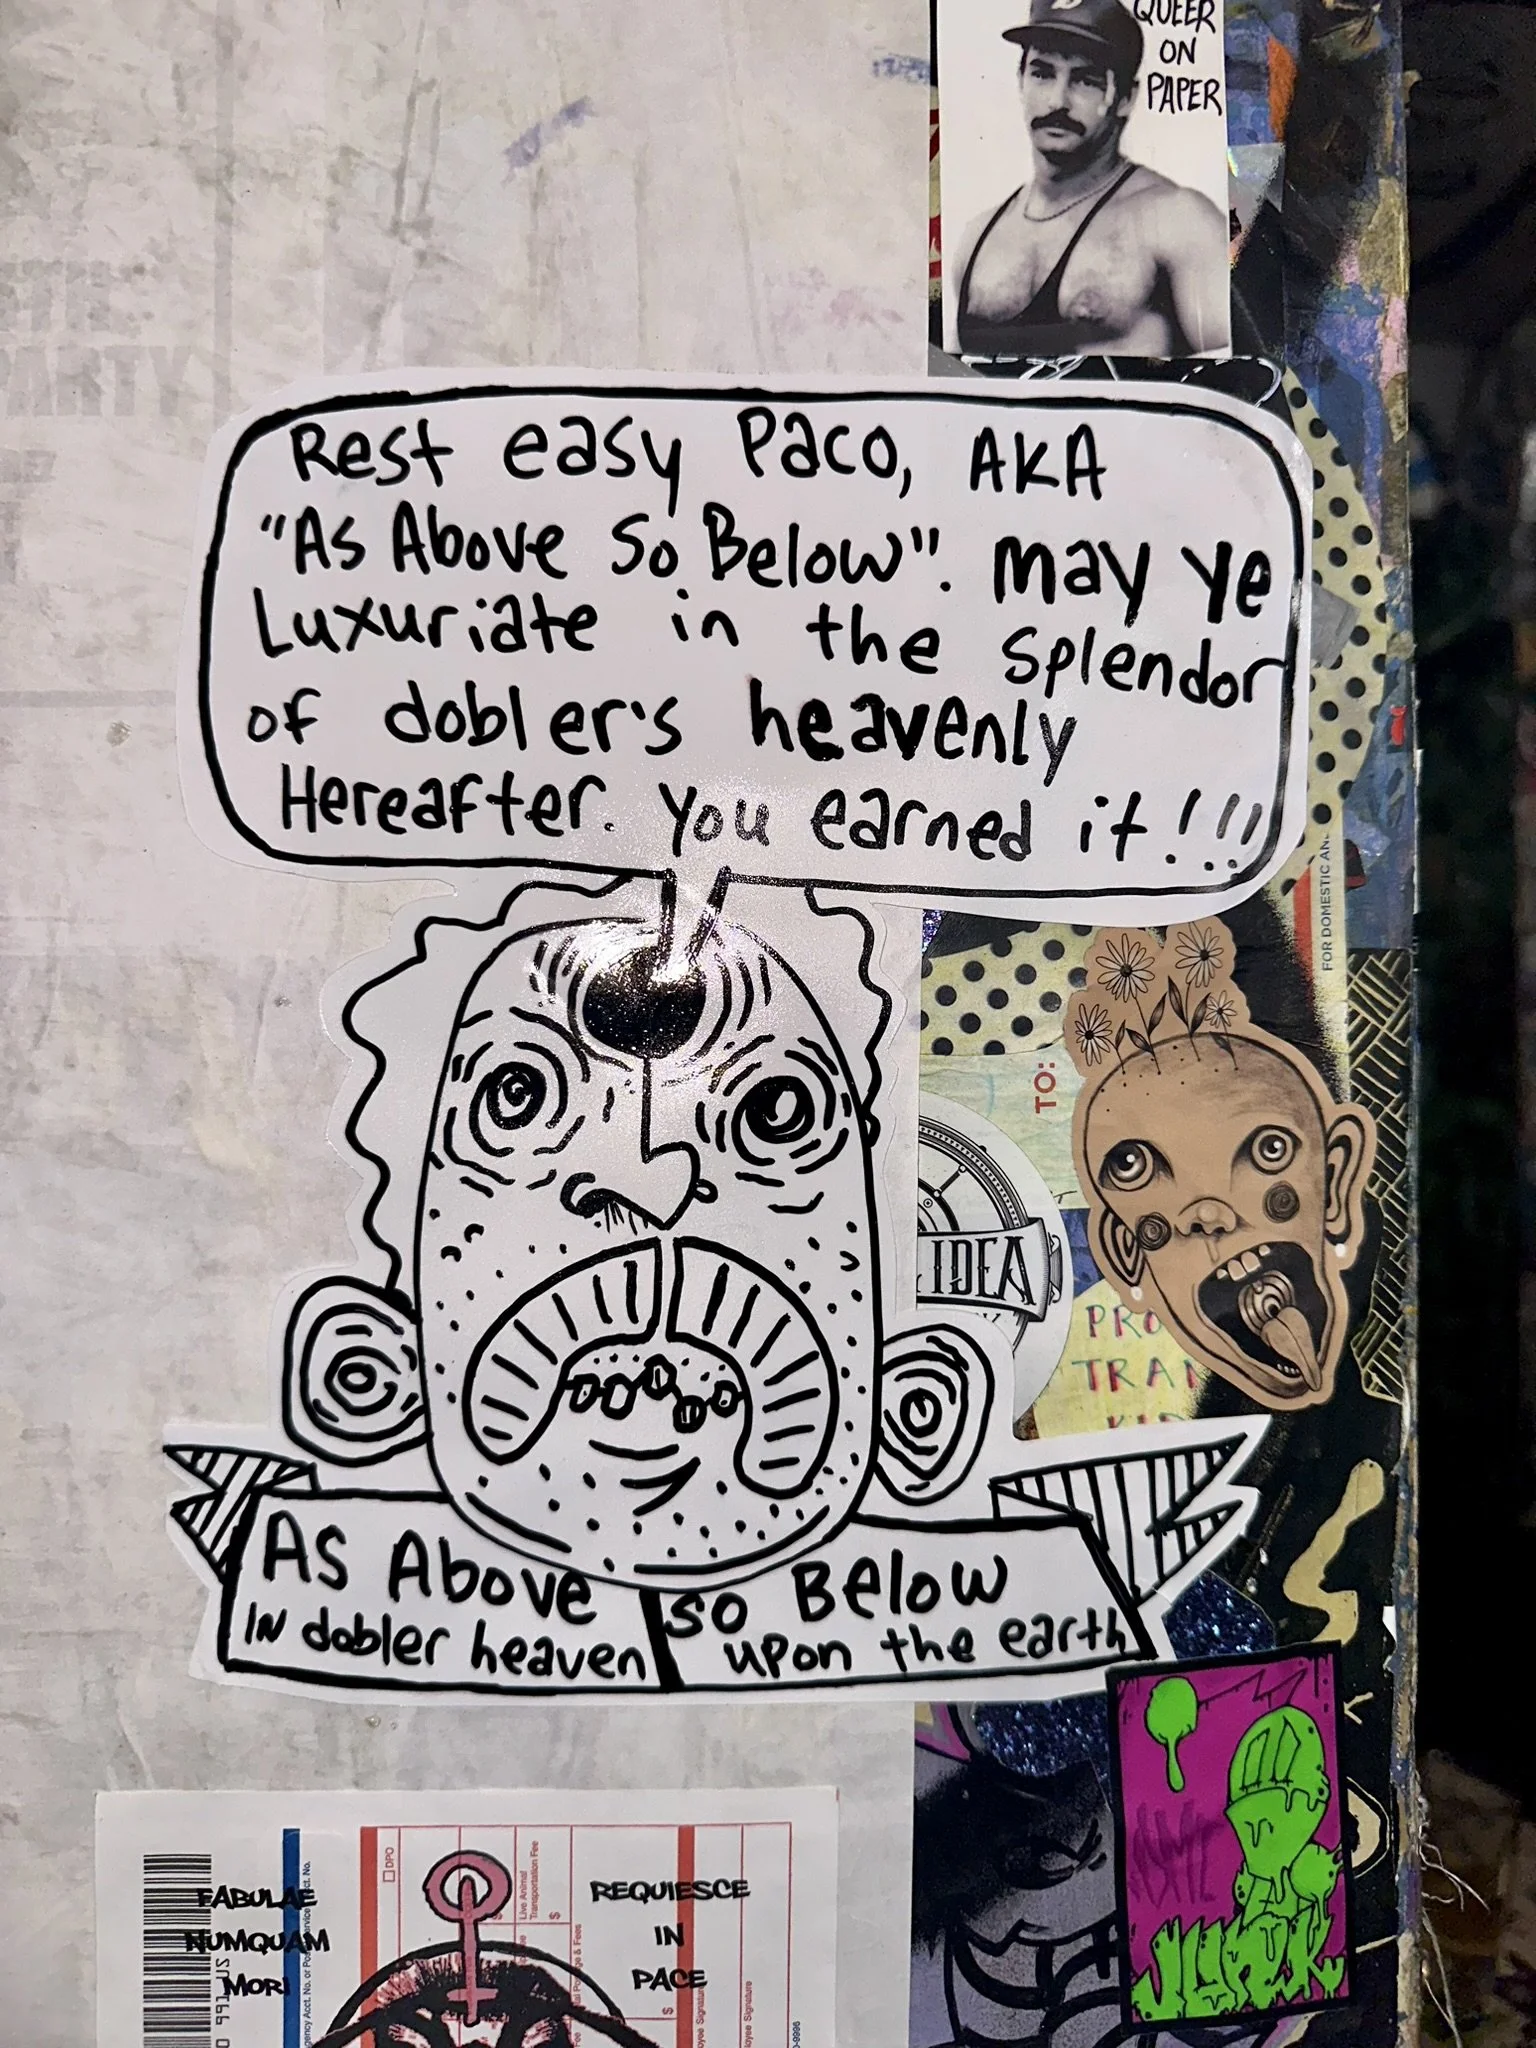 QUEER
ON
PAPER
Rest easy Paco, AKA
"As Above So Below". May ye
Luxuriate in the splendor
of dobler's heavenly
Hereafter. You earned it!!!
FOR DOMESTIC AN
TO:
IDEA
PRO
TRAN
As Above
IN dobler heaven
so Below
upon the earth
FABULAE
NUMQUAM
MORI
REQUIESCE
IN
PACE
DPO
Live Animal
Transportation Fee